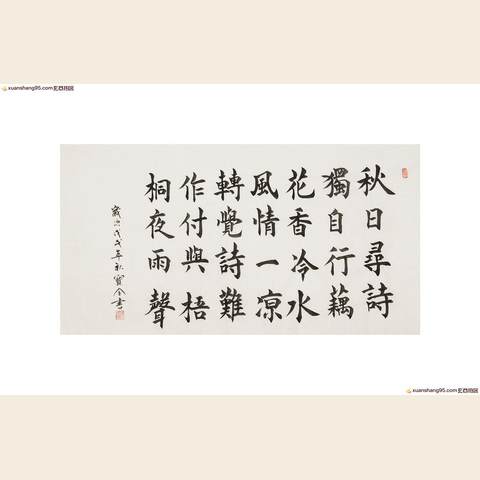 xuanshang95.com
秋日尋詩
獨自行藕
花香冷水
風情一凉
轉覺詩難
作付與梧
桐夜雨聲
歲次戊戌年秋寶書
xuanshang95.com